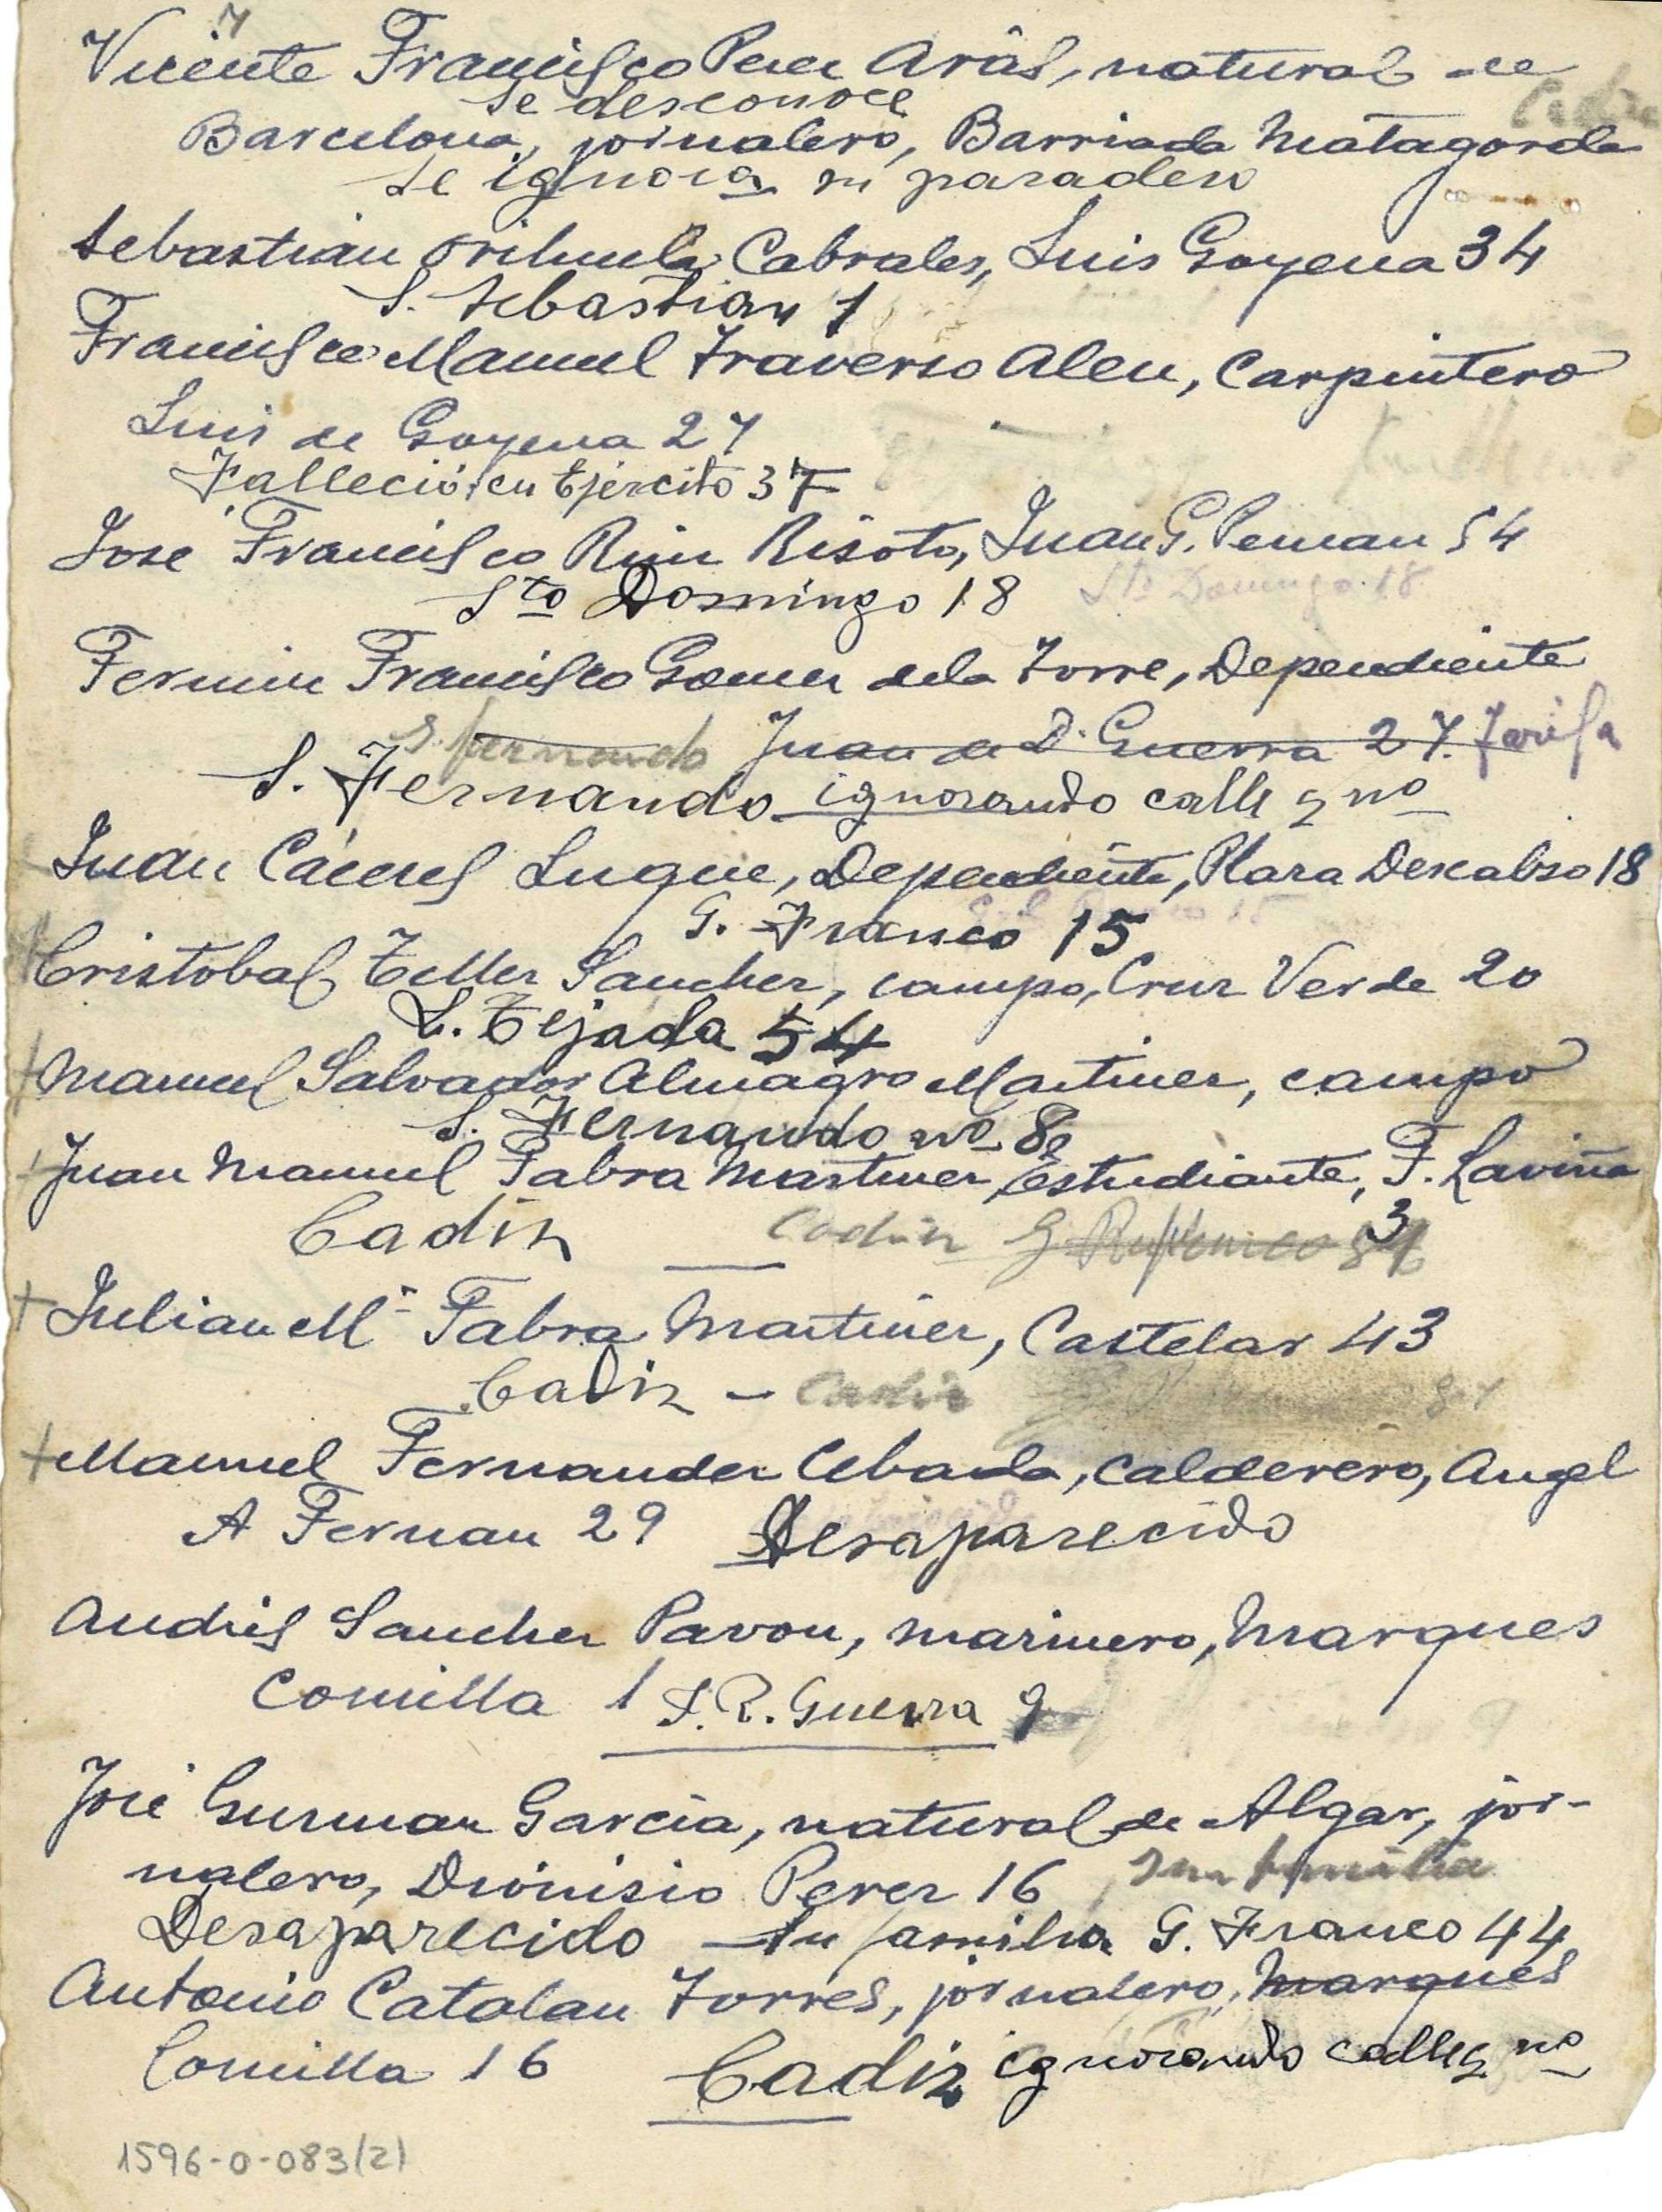 Vicente Francisco Perez Arás, natural de
se desconoce Cadiz
Barcelona, jornalero, Barriada Matagorda
se ignora su paradero
Sebastian Orihuela Cabrales, Luis Goyena 34
S. Sebastian 1
Francisco Manuel Traverso Aleu, Carpintero
Luis de Goyena 27
Falleció en Ejército 37
José Francisco Ruiz Risoto, Juan G. Peman 54
Sto Domingo 18 Sto Domingo 18
Fermin Francisco Gomez de la Torre, Dependiente
S. Fernando Juan de D. Guerra 27. Tarifa
S. Fernando ignorando calle y no
Juan Cáceres Luque, Dependiente, Plaza Descalzo 18
G. Franco 15
Cristobal Teller Sanchez, campo, Cruz Verde 20
L. Tejada 54
Manuel Salvador Almagro Martinez, campo
S. Fernando no 8
Juan Manuel Fabra Martinez, estudiante, F. Laviña
3
Cadiz Cadiz G
Julian Mª Fabra Martinez, Castelar 43
Cadiz - Cadiz
Manuel Fernandez Cebada, calderero, Angel
A Fernan 29 Desaparecido
Andrés Sanchez Pavon, marinero, Marques
Comilla 1 F. R. Guerra 9
José Guzman Garcia, natural de Algar, jor-
nalero, Dionisio Perez 16 familia
Desaparecido Su familia G. Franco 44
Antonio Catalan Torres, jornalero, Marqués
Comilla 16 Cadiz ignorando calle y no
1596-0-083(2)